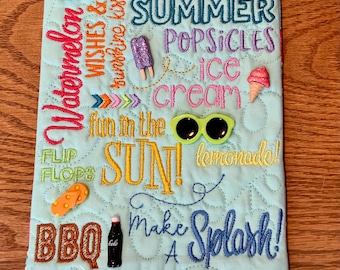 Watermelon
WISHES &
sunshine kisses
SUMMER
POPSICLES
ice
cream
fun in the
SUN!
FLIP
FLOPS
lemonade!
BBQ
Make
A
Splash!